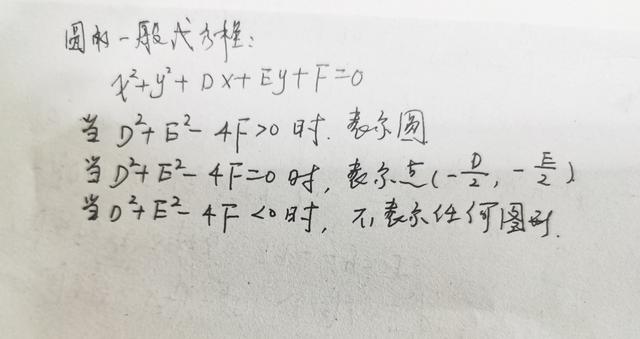 圆的一般式方程:
x²+y²+Dx+Ey+F=0
当D²+E²-4F>0时.表示圆
当D²+E²-4F=0时,表示点(-D/2,-E/2)
当D²+E²-4F<0时,不表示任何图形.